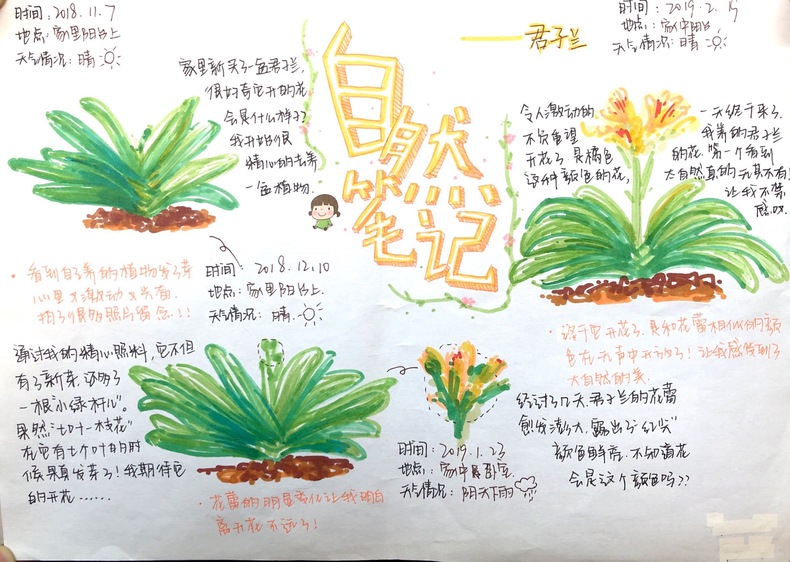 时间：2018.11.7
地点：家里阳台上
天气情况：晴
家里新买了一盆君子兰，
很好奇它开的花
会是什么样子？
我开始很
精心的去养
一盆植物.
自然
笔记
——君子兰
时间：2019.2.15
地点：家中阳台
天气情况：晴
令人激动的
不负重望
开花了.是橘色
这种颜色的花，
一天终于来了.
我养的君子兰
的花.第一个看到
大自然真的无其不有！
让我不禁
感叹.
·看到自己养的植物发了芽
心里又激动又兴奋.
拍了很多照片留念！！
时间：2018.12.10
地点：家里阳台上.
天气情况：晴.
通过我的精心照料，它不但
有了新芽.还多了
一根"小绿杆儿"。
果然"七叶一枝花"
在它有七个叶的时
候果真发芽了！我期待它
的开花……
·花蕾的明显变化让我明白
离开花不远了！
时间：2019.1.23
地点：家中卧室.
天气情况：阴天下雨
·终于它开花了.是和花蕾相似的颜
色在无声中开放了！让我感受到了
大自然的美.
经过了几天.君子兰的花蕾
愈发澎大.露出了"红尖"
颜色鲜奇.不知道花
会是这个颜色吗？？